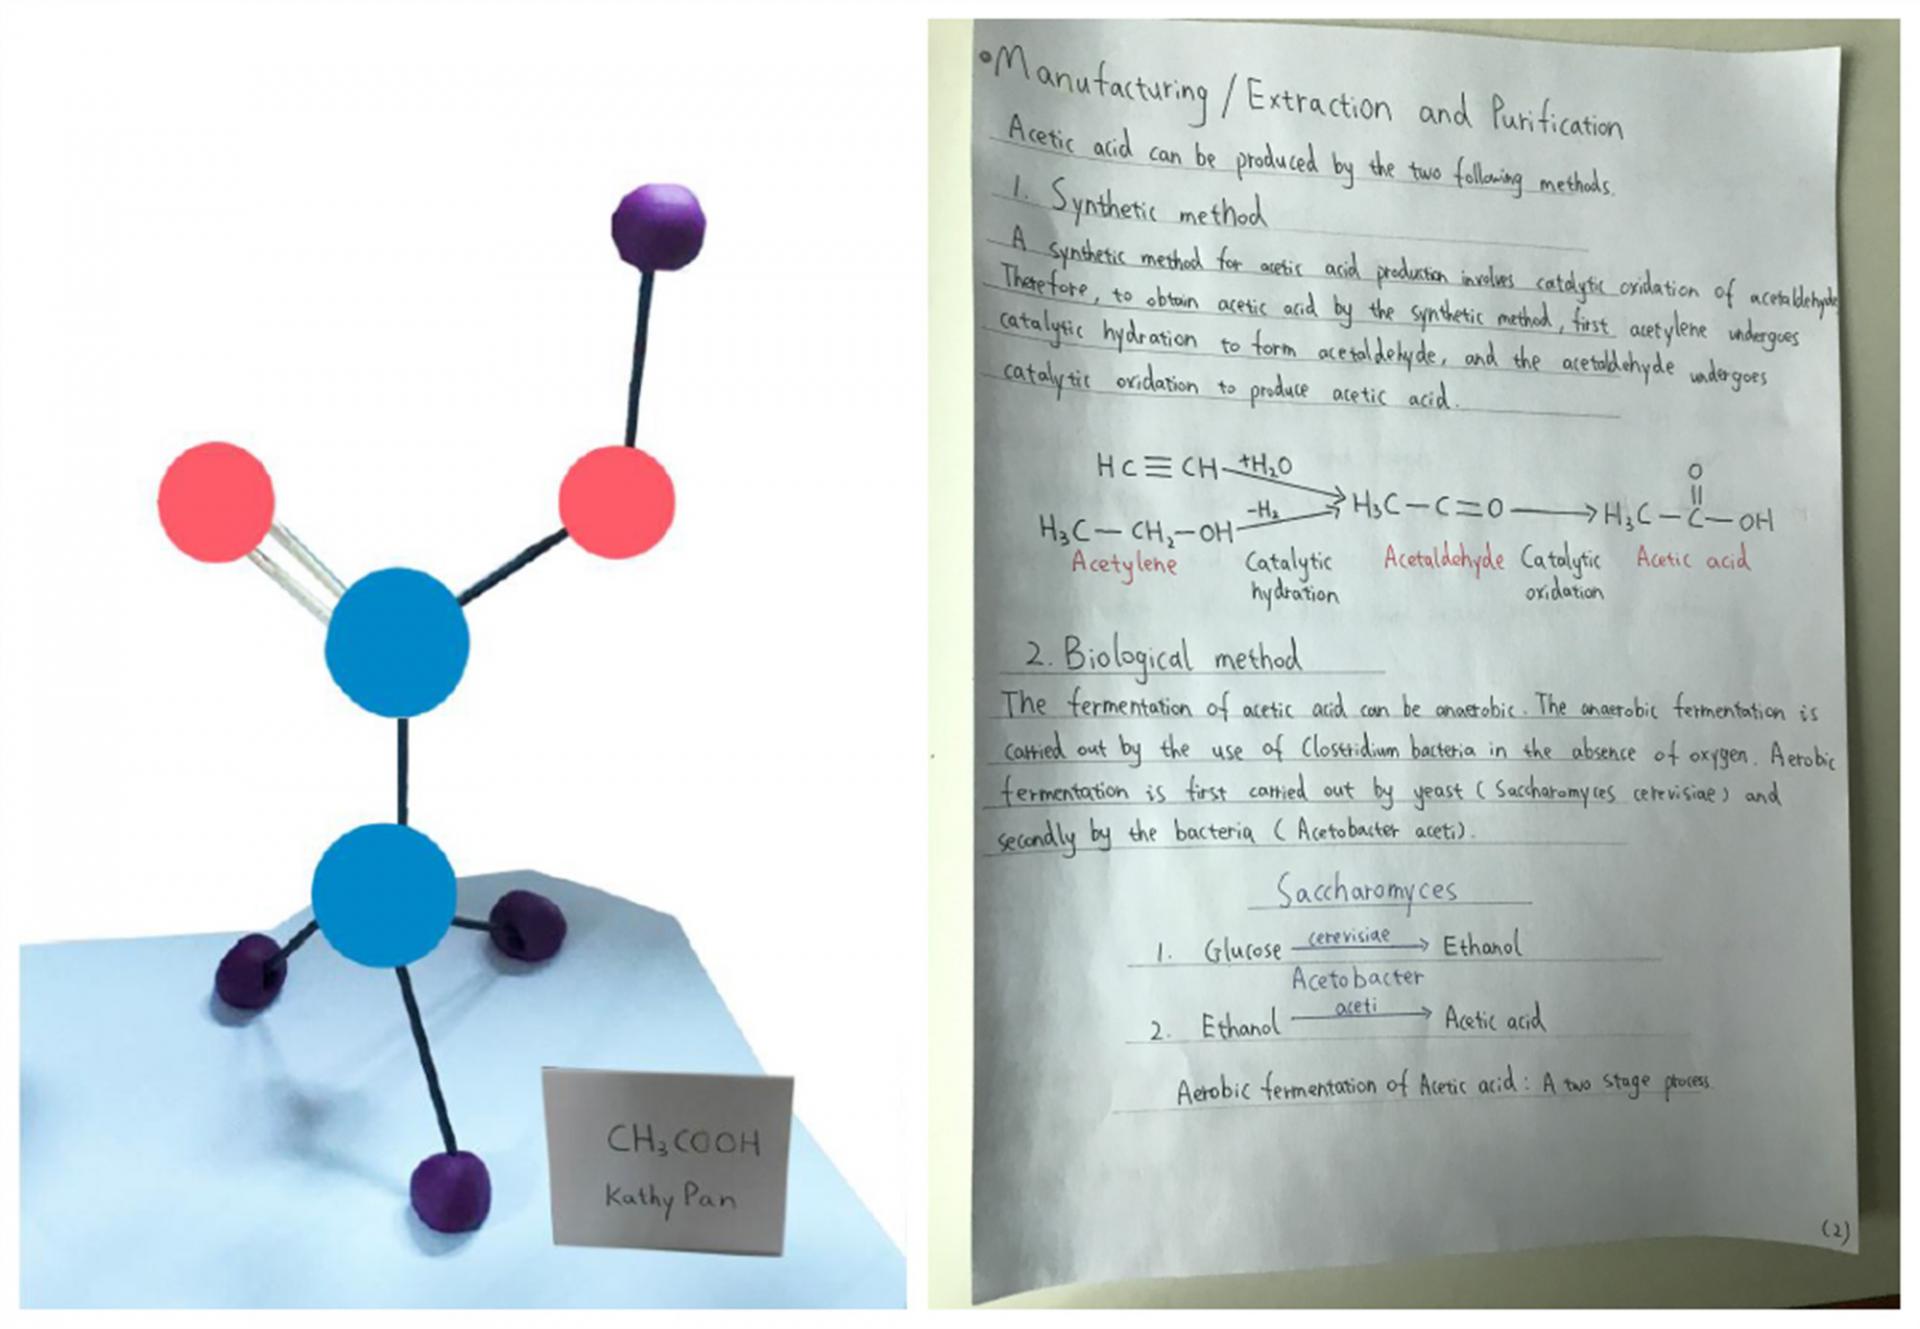 CH₃COOH
Kathy Pan
•Manufacturing / Extraction and Purification
Acetic acid can be produced by the two following methods.
1. Synthetic method
A synthetic method for acetic acid production involves catalytic oxidation of acetaldehyde.
Therefore, to obtain acetic acid by the synthetic method, first acetylene undergoes
catalytic hydration to form acetaldehyde, and the acetaldehyde undergoes
catalytic oxidation to produce acetic acid.
HC≡CH +H₂O
H₃C—CH₂—OH -H₂ H₃C—C=O → H₃C—C—OH
O
Acetylene Catalytic hydration Acetaldehyde Catalytic oxidation Acetic acid
2. Biological method
The fermentation of acetic acid can be anaerobic. The anaerobic fermentation is
carried out by the use of Clostridium bacteria in the absence of oxygen. Aerobic
fermentation is first carried out by yeast (Saccharomyces cerevisiae) and
secondly by the bacteria (Acetobacter aceti).
Saccharomyces
1. Glucose cerevisiae → Ethanol
Acetobacter
2. Ethanol aceti → Acetic acid
Aerobic fermentation of Acetic acid: A two stage process.
(2)